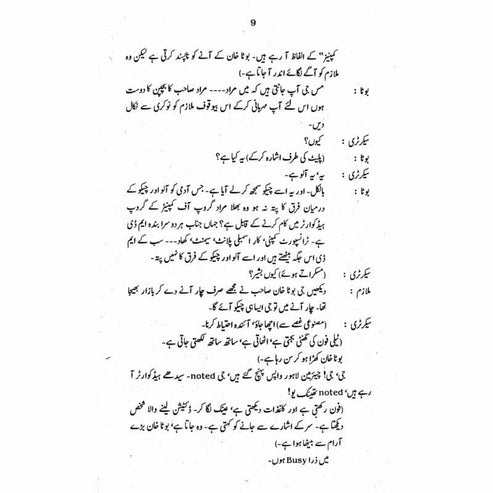 9
کمپنیز" کے الفاظ آ رہے ہیں۔ بوٹا خان کے آنے کو ناپسند کرتی ہے لیکن وہ
ملازم کو آگے لگائے اندر آ جاتا ہے۔)
بوٹا : مس جی آپ جانتی ہیں کہ میں مراد---- مراد صاحب کا بچپن کا دوست
ہوں اس لئے آپ مہربانی کرکے اس بیوقوف ملازم کو نوکری سے نکال
دیں۔
سیکرٹری : کیوں؟
بوٹا : (پلیٹ کی طرف اشارہ کرکے) یہ کیا ہے؟
سیکرٹری : یہ' یہ آلو ہے۔
بوٹا : بالکل۔ اور یہ اسے چیکو سمجھ کر لے آیا ہے۔ جس آدمی کو آلو اور چیکو کے
درمیان فرق کا پتہ نہ ہو وہ بھلا مراد گروپ آف کمپنیز کے گروپ
ہیڈکوارٹر میں کام کرنے کے قابل ہے؟ جہاں جناب ہر دوسرا بندہ ایم ڈی
ہے۔ ٹرانسپورٹ کمپنی' کار اسمبلی پلانٹ' سیمنٹ' کھاد--- سب کے ایم
ڈی اس جگہ بیٹھتے ہیں اور اسے آلو اور چیکو کے فرق کا نہیں پتہ۔
سیکرٹری : (مسکراتے ہوئے) کیوں بشیر؟
ملازم : دیکھیں جی بوٹا خان صاحب نے مجھے صرف چار آنے دے کر بازار بھیجا
تھا۔ چار آنے میں تو جی ایسا ہی چیکو آئے گا۔
سیکرٹری : (مصنوعی غصے سے) اچھا جاؤ' آئندہ احتیاط کرنا۔
(ٹیلی فون کی گھنٹی بجتی ہے' اٹھاتی ہے' ساتھ ساتھ لکھتی جاتی ہے۔
بوٹا خان کھڑا ہو کر سن رہا ہے۔)
جی' جی! چیئرمین لاہور واپس پہنچ گئے ہیں' جی noted۔ سیدھے ہیڈکوارٹر آ
رہے ہیں' noted تھینک یو!
(فون رکھتی ہے اور کاغذات دیکھتی ہے' عینک لگا کر۔ ڈکٹیشن لینے والا شخص
دیکھتا ہے۔ سر کے اشارے سے جانے کو کہتی ہے۔ وہ جاتا ہے' بوٹا خان بڑے
آرام سے بیٹھا ہوا ہے۔)
میں ذرا Busy ہوں۔